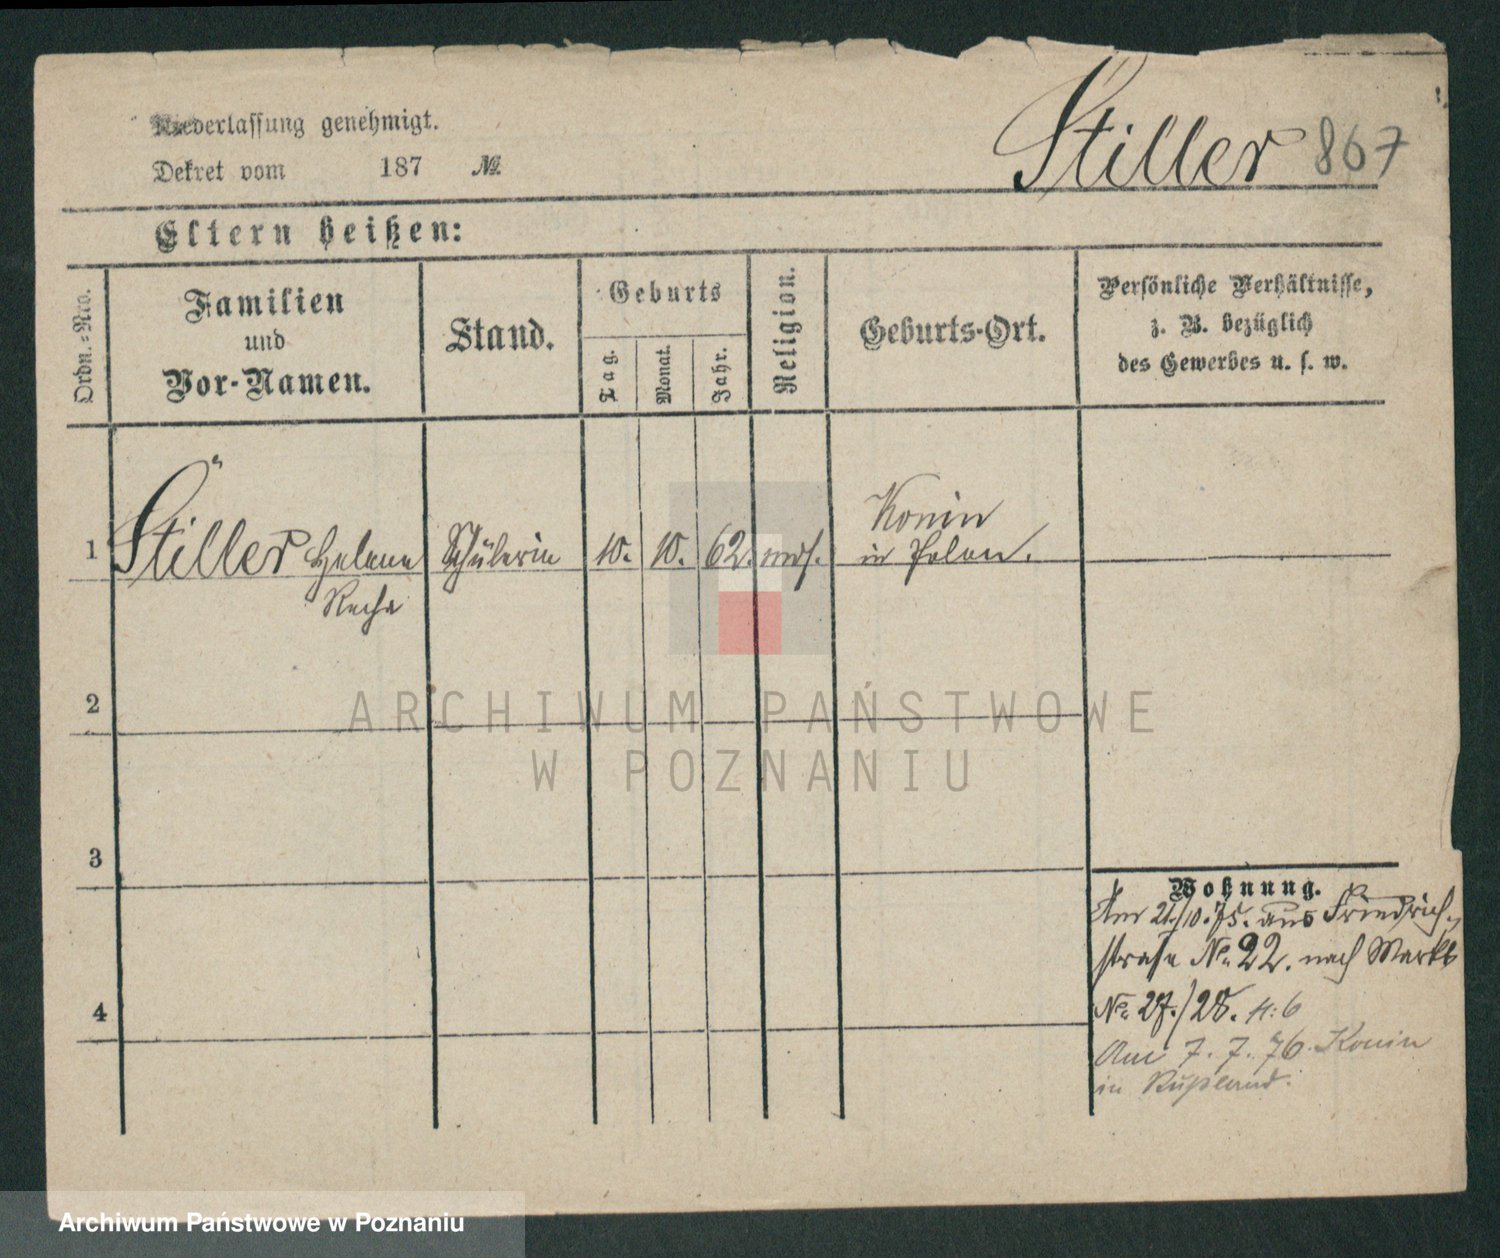 Niederlassung genehmigt.
Dekret vom 187 №
Stiller 867
Eltern heißen:
Ordn.-No.
Familien
und
Vor-Namen.
Stand.
Geburts
Tag.
Monat.
Jahr.
Religion.
Geburts-Ort.
Persönliche Verhältnisse,
z. B. bezüglich
des Gewerbes u. s. w.
1 Stiller Helene Schülerin 10. 10. 62. mos. Konin
in Polen.
Recha
2
3
4
Wohnung.
Am 21/10.75. aus Friedrich-
straße No. 22. nach Markt
No. 27./28. H: 6
Am 7. 7. 76. Konin
in Rußland.
ARCHIWUM PAŃSTWOWE
W POZNANIU
Archiwum Państwowe w Poznaniu